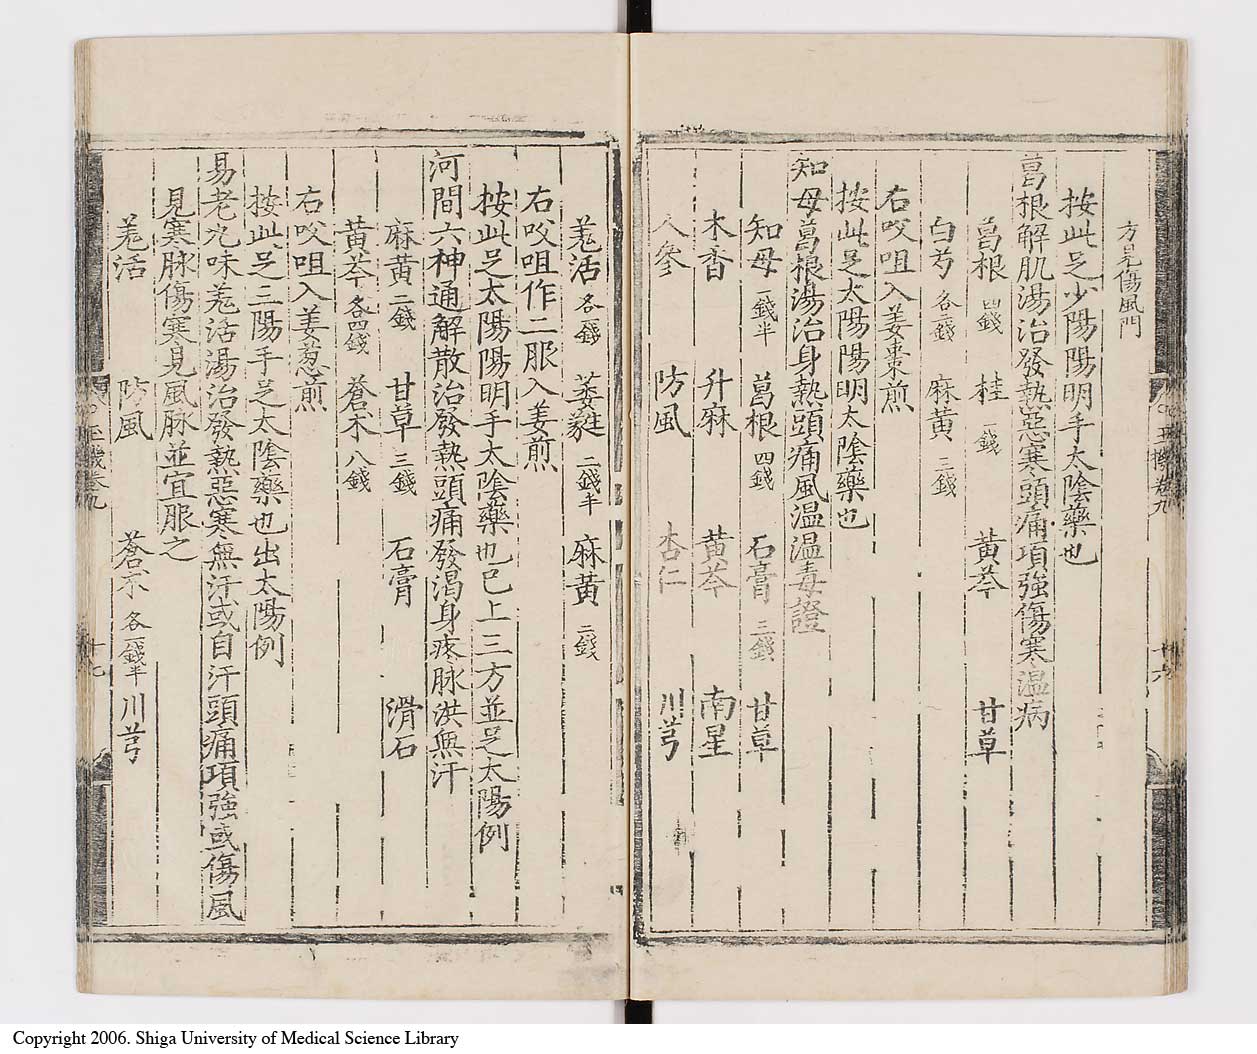 方見傷風門
按此足少陽陽明手太陰藥也
葛根解肌湯治發熱惡寒頭痛項強傷寒温病
葛根 四錢 桂 一錢 黃芩 甘草
白芍 各二錢 麻黃 三錢
右㕮咀入姜棗煎
按此是太陽陽明太陰藥也
知母葛根湯治身熱頭痛風温温毒證
知母 一錢半 葛根 四錢 石膏 三錢 甘草
木香 升麻 黃芩 南星
人參 防風 杏仁 川芎
羌活 各一錢 萎蕤 二錢半 麻黃 二錢
右㕮咀作二服入姜煎
按此足太陽陽明手太陰藥也已上三方並足太陽例
河間六神通解散治發熱頭痛發渴身疼脉洪無汗
麻黃 二錢 甘草 三錢 石膏 滑石
黃芩 各四錢 蒼朮 八錢
右㕮咀入姜葱煎
按此足三陽手足太陰藥也出太陽例
易老九味羌活湯治發熱惡寒無汗或自汗頭痛項強或傷風
見寒脉傷寒見風脉並宜服之
羌活 防風 蒼朮 各一錢半 川芎
玉機卷九
十七
Copyright 2006. Shiga University of Medical Science Library